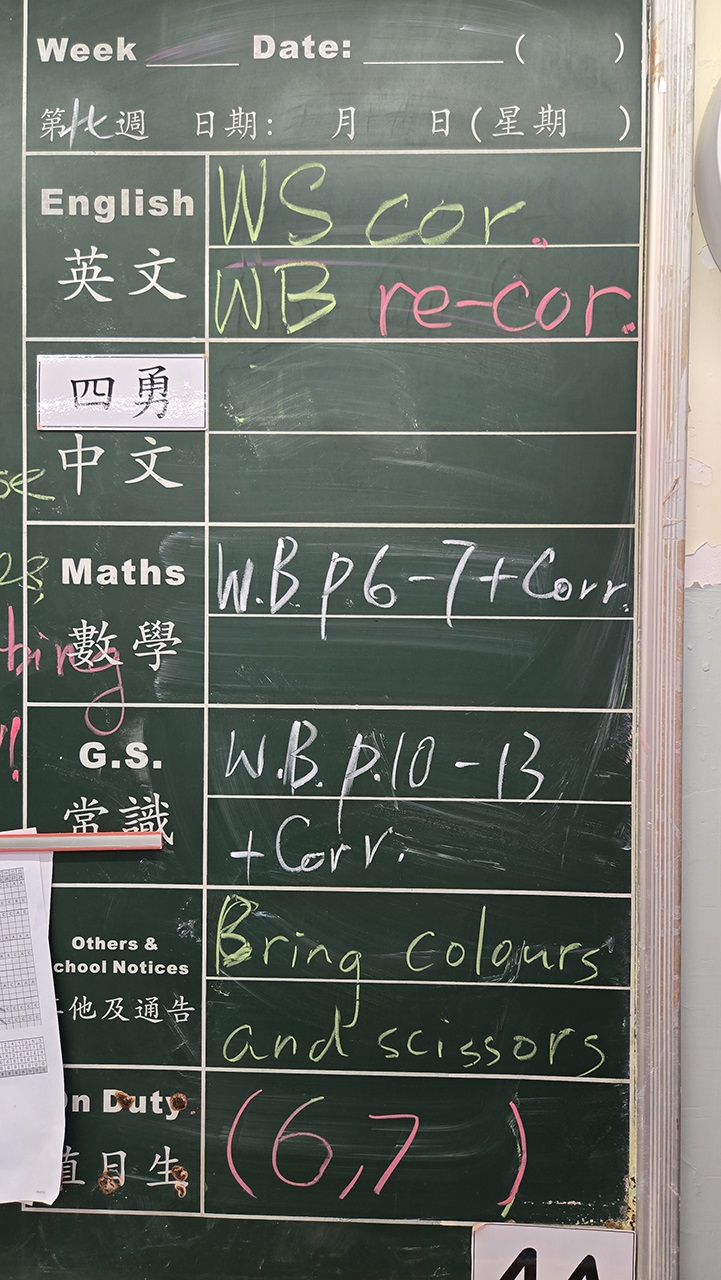 Week ____ Date: ________ ( )
第 週 日期: 月 日(星期 )
English
WS cor.
英文
WB re-cor.
四勇
中文
Maths
W.B. p.6-7+Corr.
數學
G.S.
W.B. p.10-13
常識
+Corr.
Others &
chool Notices
Bring colours
他及通告
and scissors
On Duty
(6,7 )
直日生